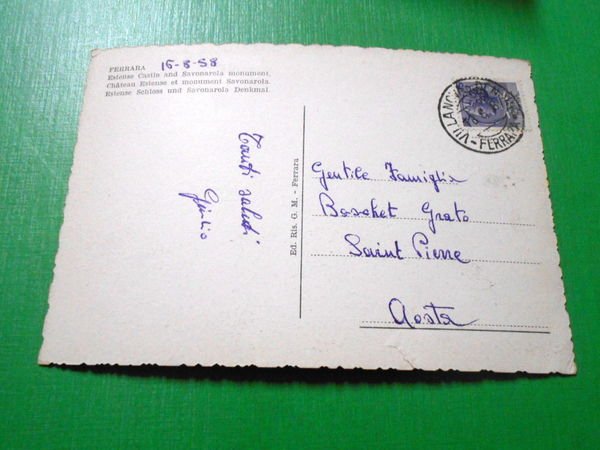 FERRARA 16-8-58
Estense Castle and Savonarola monument.
Château Estense et monument Savonarola.
Estense Schloss und Savonarola Denkmal.
Tanti saluti
Giulio
Ed. Ris. G. M. - Ferrara
Gentile Famiglia
Boschet Grato
Saint Pierre
Aosta
FERRARA